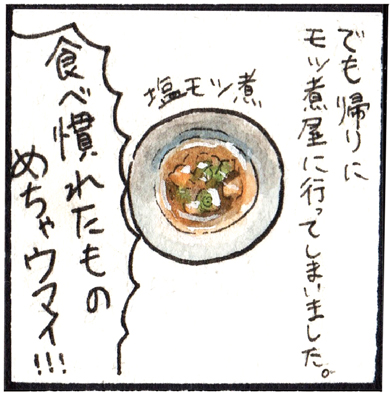 でも帰りに
モツ煮屋に行ってしまいました。
塩モツ煮
食べ慣れたもの
めちゃウマイ!!!